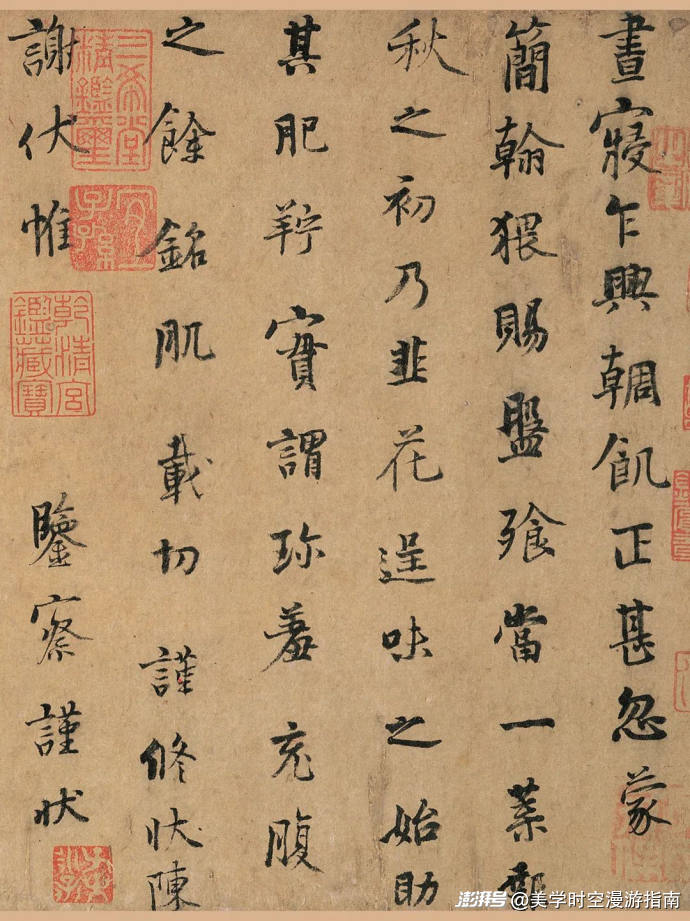 晝寢乍興輖飢正甚忽蒙
簡翰猥賜盤飧當一葉報
秋之初乃韭花逞味之始助
其肥羜實謂珍羞充腹
之餘銘肌載切謹修狀陳
謝伏惟鑒察謹狀
三希堂精鑑璽
宜子孫
乾清宮鑑藏寶
澎湃号@美学时空漫游指南